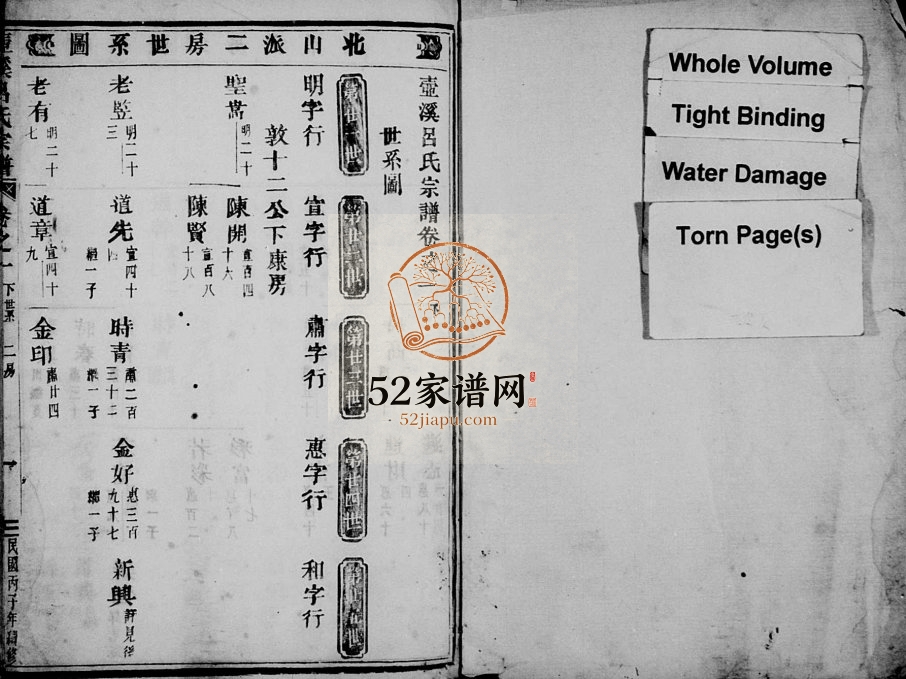 Whole Volume
Tight Binding
Water Damage
Torn Page(s)
壺溪呂氏宗譜卷之一下
世系圖
北山派二房世系圖
明字行
宣字行
肅字行
惠字行
和字行
敦十二公下康房
聖嵩 明二十
陳開 宣百四十六
陳賢 宣百八十八
老竪 明二十三
道先 宣四十四 繼一子
時青 肅二百三十二 繼一子
金好 惠三百九十七 繼一子
新興 詳見後
老有 明二十七
道章 宣四十九
金印 肅廿四
卷之一 下世系 二房
民國丙子年續修
52家谱网
52jiapu.com